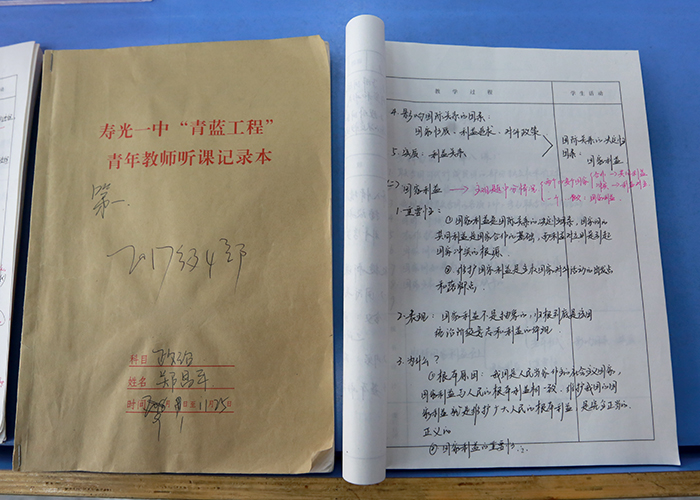 寿光一中“青蓝工程”
青年教师听课记录本
第一
2017级4部
科目 政治
姓名 郑昌军
时间 月 日至 11月25日
教学过程
学生活动
4.影响国际关系的因素：
国家性质、利益追求、对外政策
5.实质：利益关系
国际关系的决定性
因素：
国家利益
(二)国家利益
1.重要性：
①国家利益是国际关系的决定性因素，国家间的
共同利益是国家合作的基础，而利益对立则是引起
国家冲突的根源
②维护国家利益是主权国家对外活动的出发点
和落脚点
2.表现：国家利益不是抽象的，归根到底是该国
统治阶级意志和利益的体现
3.为什么？
①根本原因：我国是人民当家作主的社会主义国家，
国家利益与人民的根本利益相一致。维护我国的国
家利益就是维护广大人民的根本利益，是完全正当的、
正义的
②国家利益的重要性